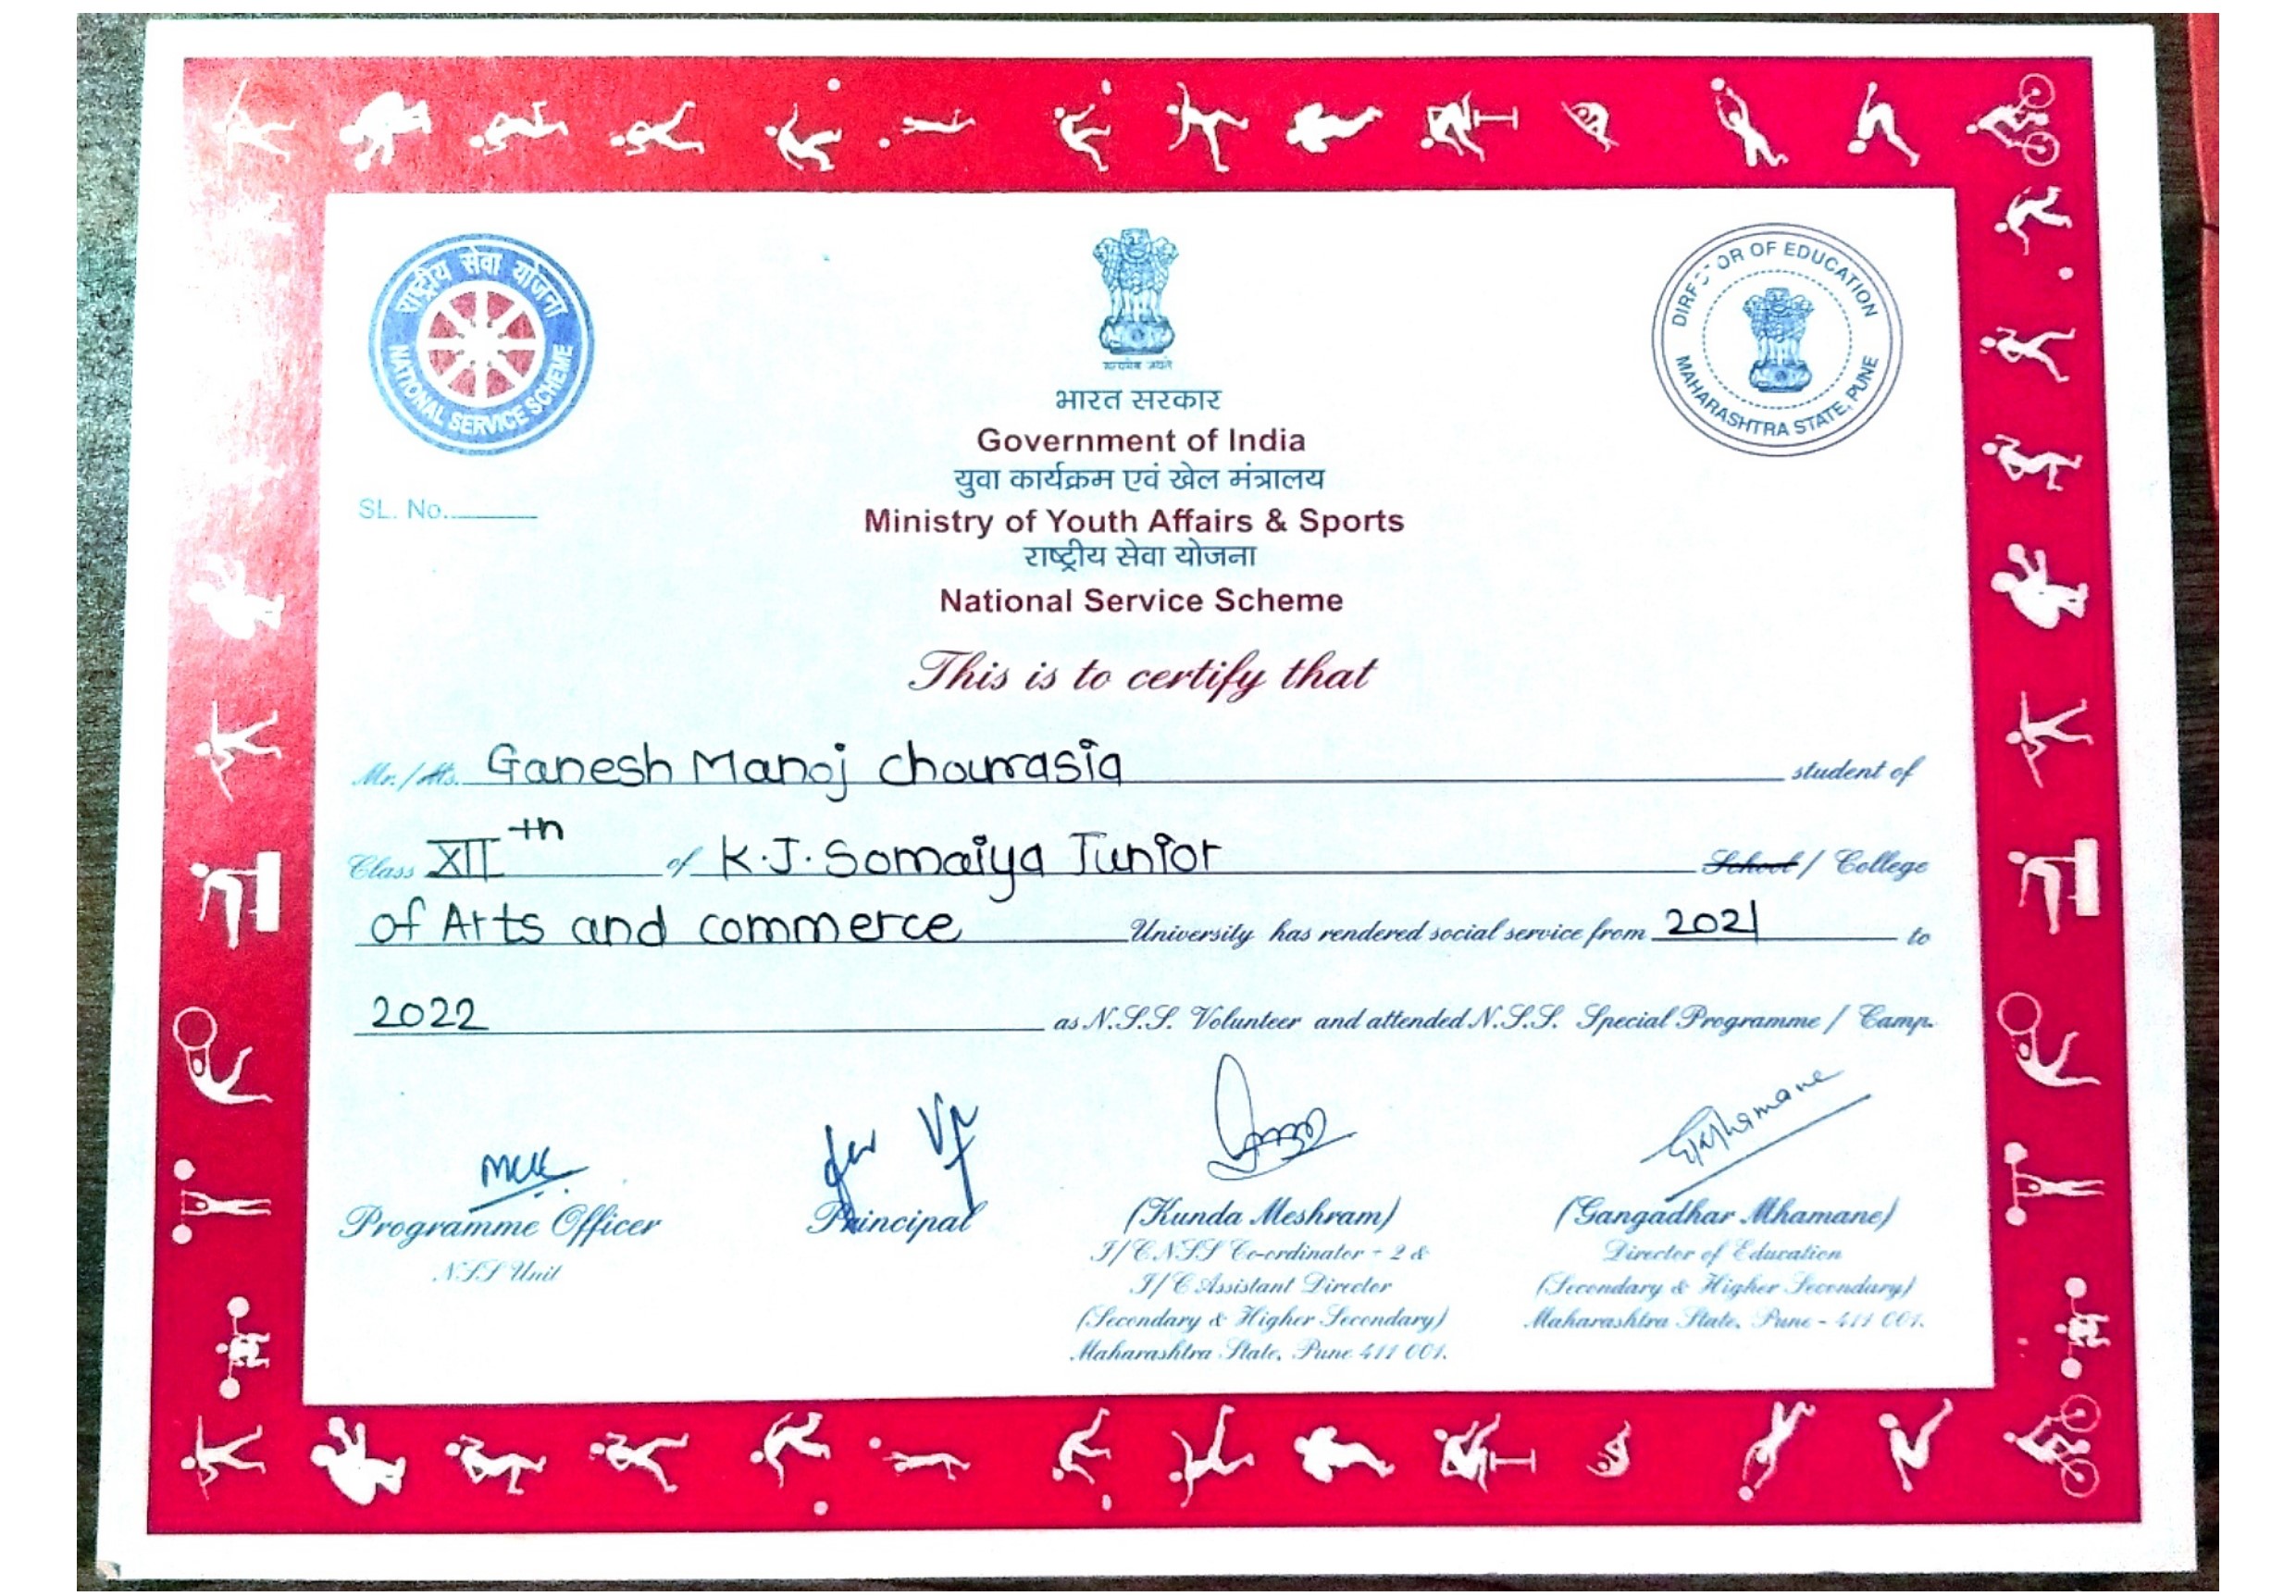 राष्ट्रीय सेवा योजना
NATIONAL SERVICE SCHEME
सत्यमेव जयते
DIRECTOR OF EDUCATION
MAHARASHTRA STATE, PUNE
भारत सरकार
Government of India
युवा कार्यक्रम एवं खेल मंत्रालय
SL. No.
Ministry of Youth Affairs & Sports
राष्ट्रीय सेवा योजना
National Service Scheme
This is to certify that
Mr./Ms. Ganesh Manoj chourasia student of
Class XIIth of K.J. Somaiya Junior School / College
of Arts and commerce University has rendered social service from 2021 to
2022 as N.S.S. Volunteer and attended N.S.S. Special Programme / Camp.
Programme Officer
N.S.S Unit
for
Principal
(Kunda Meshram)
I/C N.S.S Co-ordinator - 2 &
I/C Assistant Director
(Secondary & Higher Secondary)
Maharashtra State, Pune 411 001.
(Gangadhar Mhamane)
Director of Education
(Secondary & Higher Secondary)
Maharashtra State, Pune - 411 001.